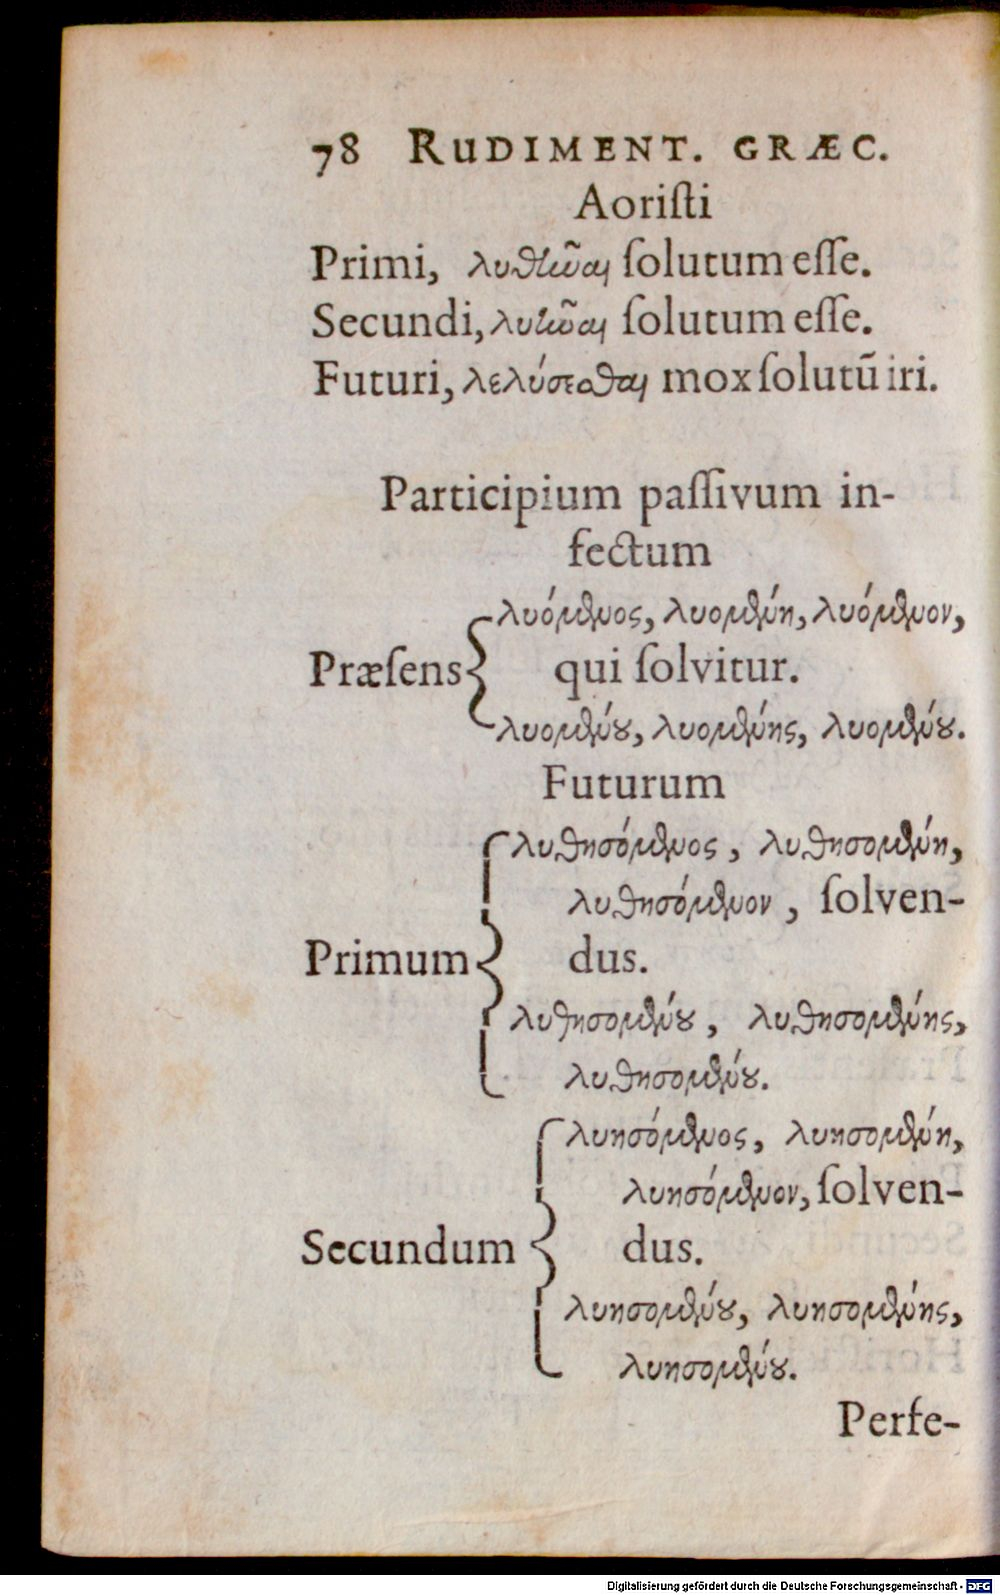 78 RUDIMENT. GRÆC.
Aoriſti
Primi, λυθῆναι ſolutum eſſe.
Secundi, λυῆναι ſolutum eſſe.
Futuri, λελύσεσθαι mox ſolutũ iri.
Participium paſſivum in-
fectum
λυόμενος, λυομένη, λυόμενον,
Præſens qui ſolvitur.
λυομένου, λυομένης, λυομένου.
Futurum
λυθησόμενος, λυθησομένη,
λυθησόμενον, ſolven-
Primum dus.
λυθησομένου, λυθησομένης,
λυθησομένου.
λυησόμενος, λυησομένη,
λυησόμενον, ſolven-
Secundum dus.
λυησομένου, λυησομένης,
λυησομένου.
Perfe-
Digitalisierung gefördert durch die Deutsche Forschungsgemeinschaft - DFG